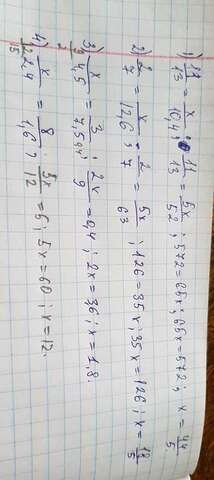 1) 11/13 = x/10,4; 11/13 = 5x/52; 572 = 65x; 65x = 572; x = 44/5
2) 2/7 = x/12,6; 2/7 = 5x/63; 126 = 35x; 35x = 126; x = 18/5
3) x/4,5 = 3/7,5; 2x/9 = 0,4; 2x = 3,6; x = 1,8.
4) x/2,4 = 8/1,6; 5x/12 = 5; 5x = 60; x = 12.